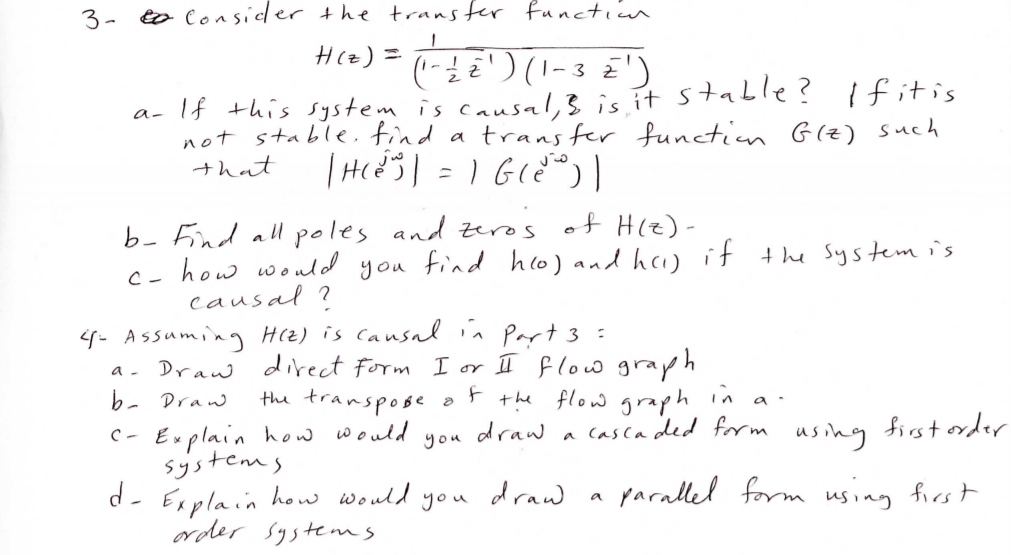 3- Consider the transfer function
H(z) = 1 / (1-1/2 z^-1)(1-3 z^-1)
a- If this system is causal, & is it stable? If it is
not stable. find a transfer function G(z) such
that |H(e^jω)| = |G(e^jω)|
b- Find all poles and zeros of H(z)-
c- how would you find h(0) and h(1) if the system is
causal?
4- Assuming H(z) is causal in Part 3:
a- Draw direct form I or II flow graph
b- Draw the transpose of the flow graph in a-
c- Explain how would you draw a cascaded form using first order
systems
d- Explain how would you draw a parallel form using first
order systems